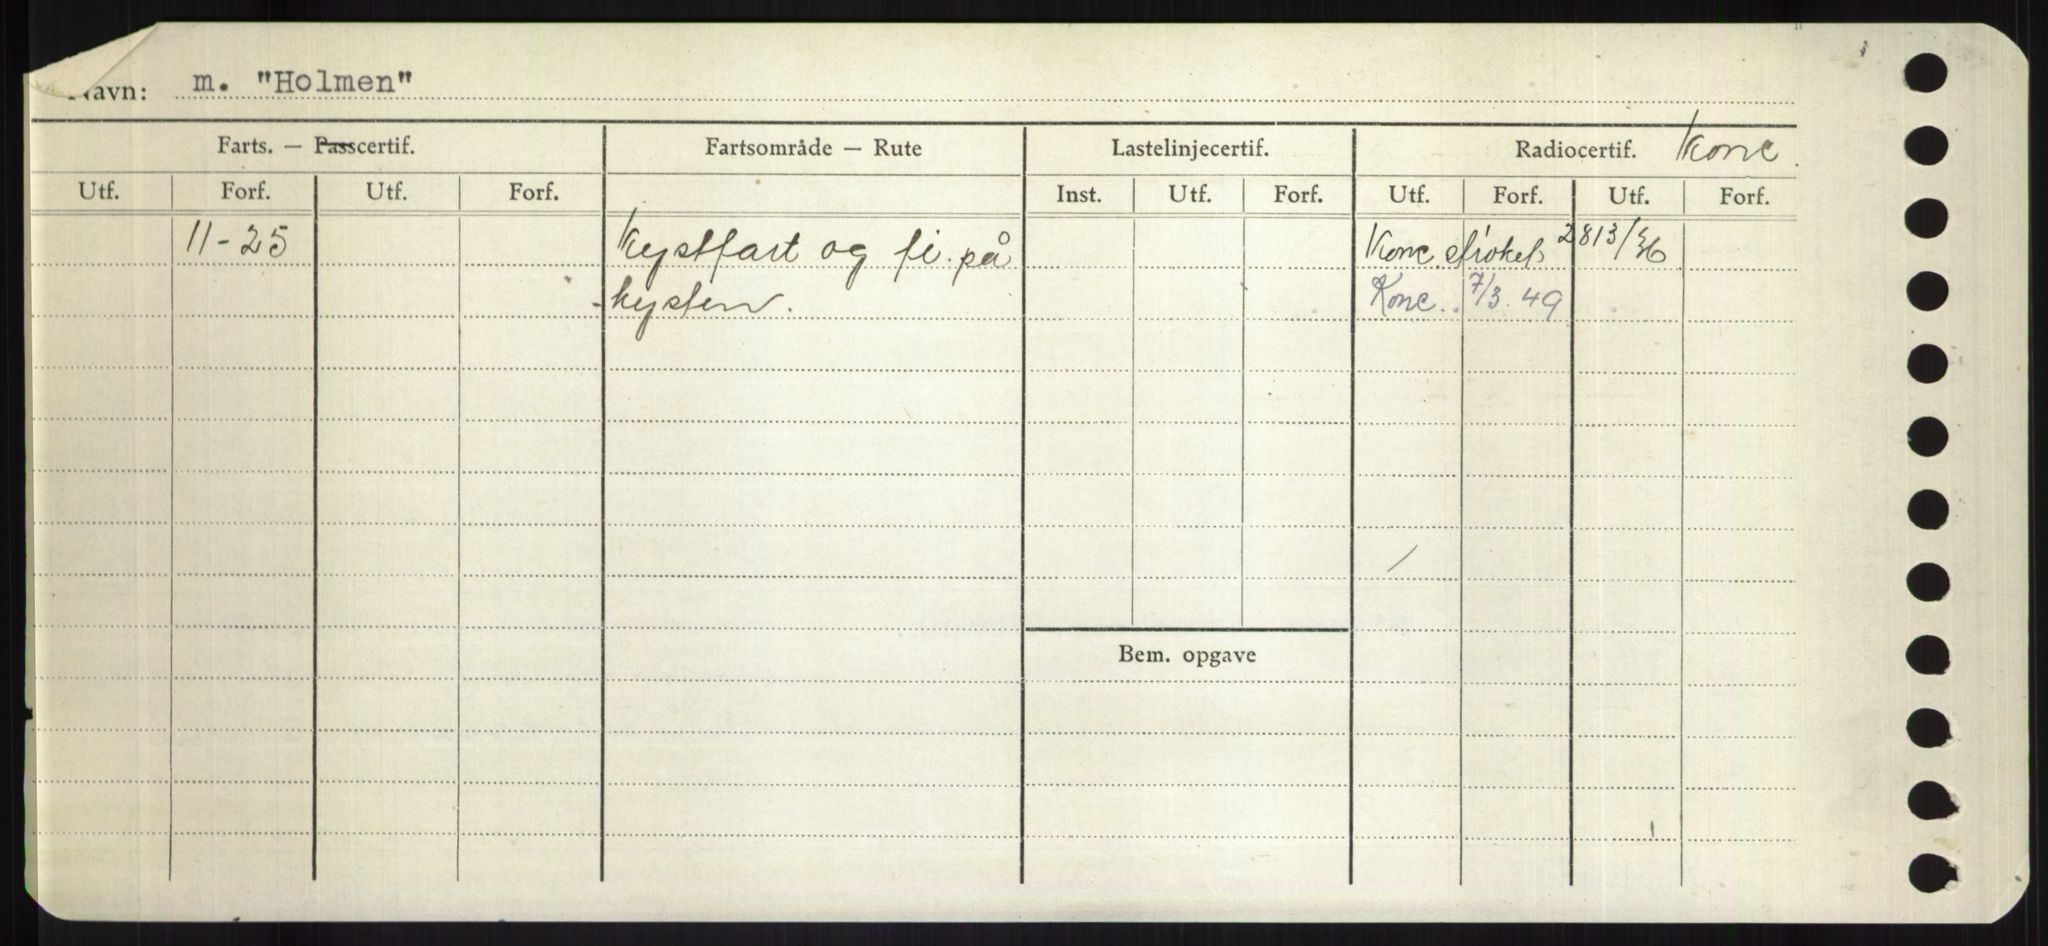 Navn: m. "Holmen"
Farts. — Passcertif. Fartsområde — Rute Lastelinjecertif. Radiocertif. Konc.
Utf. Forf. Utf. Forf. Inst. Utf. Forf. Utf. Forf. Utf. Forf.
11-25 Kystfart og fi. på Konc. strøket
kysten. Konc. 7/3.49
Bem. opgave